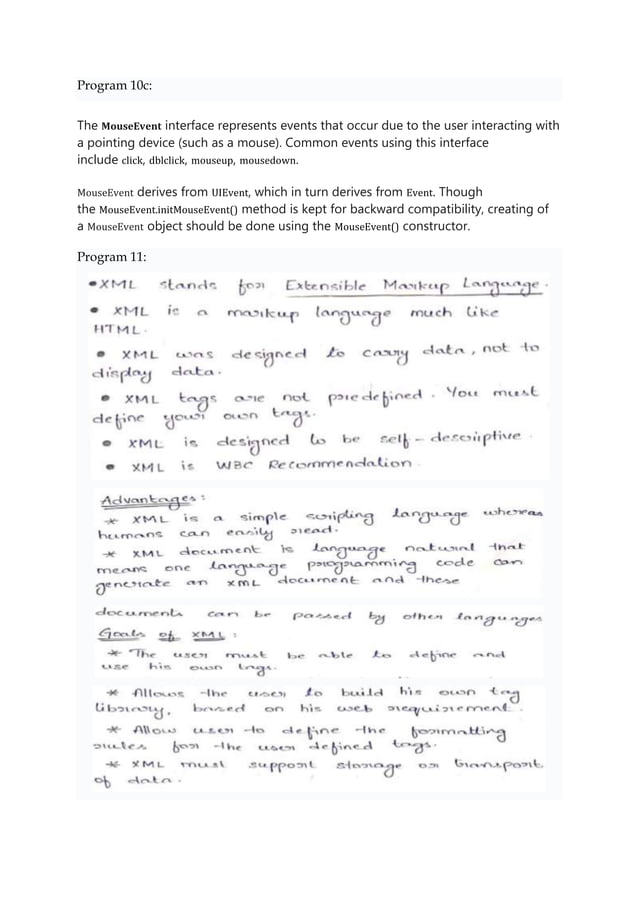 Program 10c:
The MouseEvent interface represents events that occur due to the user interacting with
a pointing device (such as a mouse). Common events using this interface
include click, dblclick, mouseup, mousedown.
MouseEvent derives from UIEvent, which in turn derives from Event. Though
the MouseEvent.initMouseEvent() method is kept for backward compatibility, creating of
a MouseEvent object should be done using the MouseEvent() constructor.
Program 11:
• XML stands for Extensible Markup Language.
• XML is a markup language much like
HTML.
• XML was designed to carry data, not to
display data.
• XML tags are not predefined. You must
define your own tags.
• XML is designed to be self-descriptive.
• XML is W3C Recommendation.
Advantages:
* XML is a simple scripting language whereas
humans can easily read.
* XML document is language natural that
means one language programming code can
generate an XML document and these
documents can be passed by other languages
Goals of XML:
* The user must be able to define and
use his own tags.
* Allows the user to build his own tag
library, based on his web requirement.
* Allow user to define the formatting
rules for the user defined tags.
* XML must support storage or transport
of data.